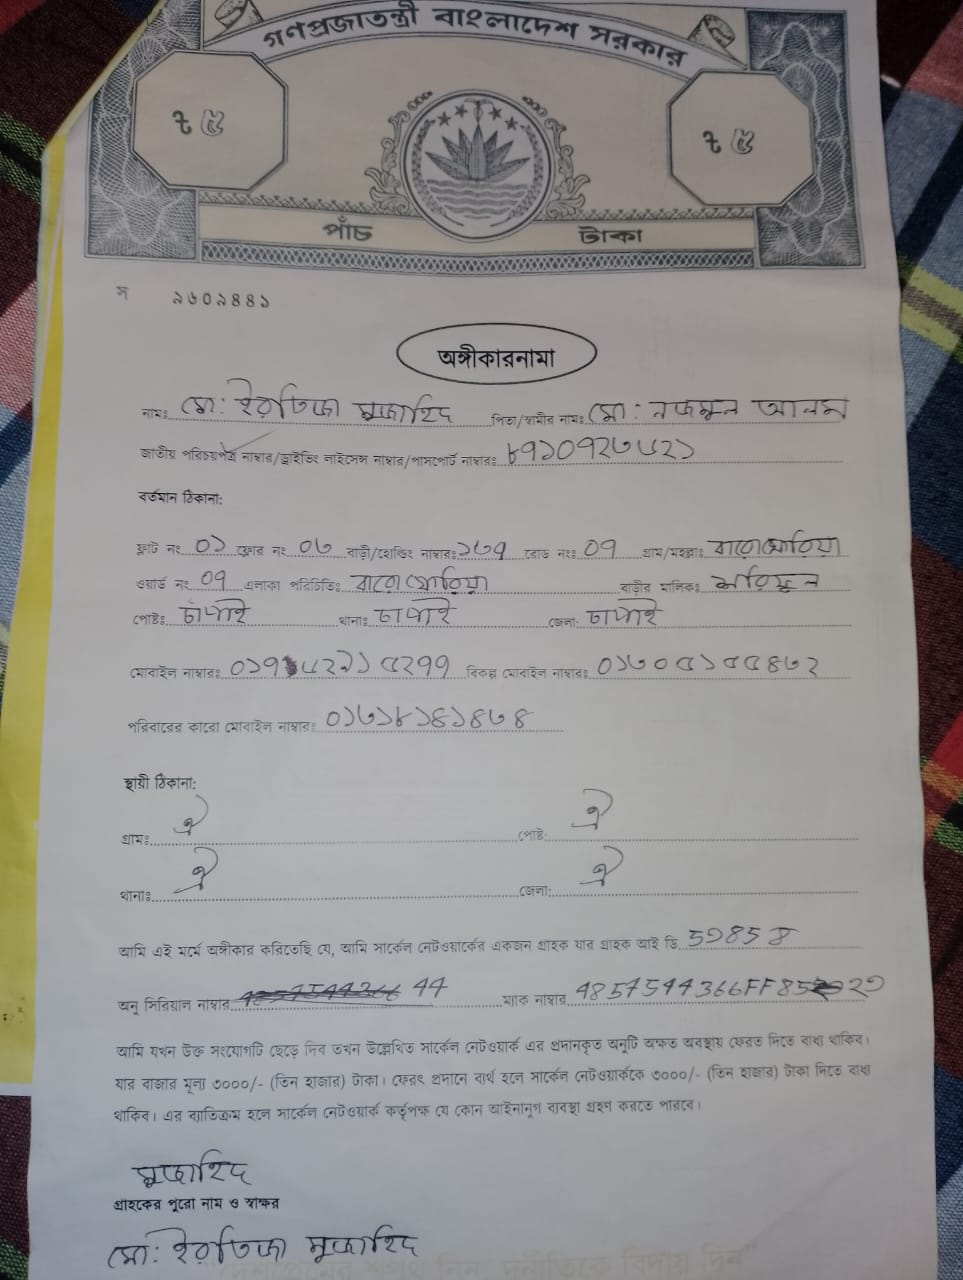 গণপ্রজাতন্ত্রী বাংলাদেশ সরকার
ট ৫ ট ৫
পাঁচ টাকা
স ২৬০২৪৪১
অঙ্গীকারনামা
নামঃ মো: ইরতিজা মুজাহিদ পিতা/স্বামীর নামঃ মো: নজমুল আলম
জাতীয় পরিচয়পত্র নাম্বার/ড্রাইভিং লাইসেন্স নাম্বার/পাসপোর্ট নাম্বারঃ ৮৭১০৭২৬৬২১
বর্তমান ঠিকানা:
ফ্লাট নং ০১ ফ্লোর নং ০৬ বাড়ী/হোল্ডিং নাম্বারঃ ১৬৭ রোড নংঃ ০৭ গ্রাম/মহল্লাঃ বারোঘোরিয়া
ওয়ার্ড নং ০৭ এলাকা পরিচিতিঃ বারোঘোরিয়া বাড়ীর মালিকঃ
পোষ্টঃ চাঁপাই থানাঃ চাপাই জেলা: চাপাই
মোবাইল নাম্বারঃ বিকল্প মোবাইল নাম্বারঃ ০১৬০৫১৫৫৪৬২
পরিবারের কারো মোবাইল নাম্বারঃ ০১৬১৮১৪১৪৬৪
স্থায়ী ঠিকানা:
গ্রামঃ ঐ পোষ্ট: ঐ
থানাঃ ঐ জেলা: ঐ
আমি এই মর্মে অঙ্গীকার করিতেছি যে, আমি সার্কেল নেটওয়ার্কের একজন গ্রাহক যার গ্রাহক আই ডি
অনু সিরিয়াল নাম্বার 44 ম্যাক নাম্বার
আমি যখন উক্ত সংযোগটি ছেড়ে দিব তখন উল্লেখিত সার্কেল নেটওয়ার্ক এর প্রদানকৃত অনুটি অক্ষত অবস্থায় ফেরত দিতে বাধ্য থাকিব।
যার বাজার মূল্য ৩০০০/- (তিন হাজার) টাকা। ফেরৎ প্রদানে ব্যর্থ হলে সার্কেল নেটওয়ার্ককে ৩০০০/- (তিন হাজার) টাকা দিতে বাধ্য
থাকিব। এর ব্যাতিক্রম হলে সার্কেল নেটওয়ার্ক কর্তৃপক্ষ যে কোন আইনানুগ ব্যবস্থা গ্রহণ করতে পারবে।
মুজাহিদ
গ্রাহকের পুরো নাম ও স্বাক্ষর
মো: ইরতিজা মুজাহিদ